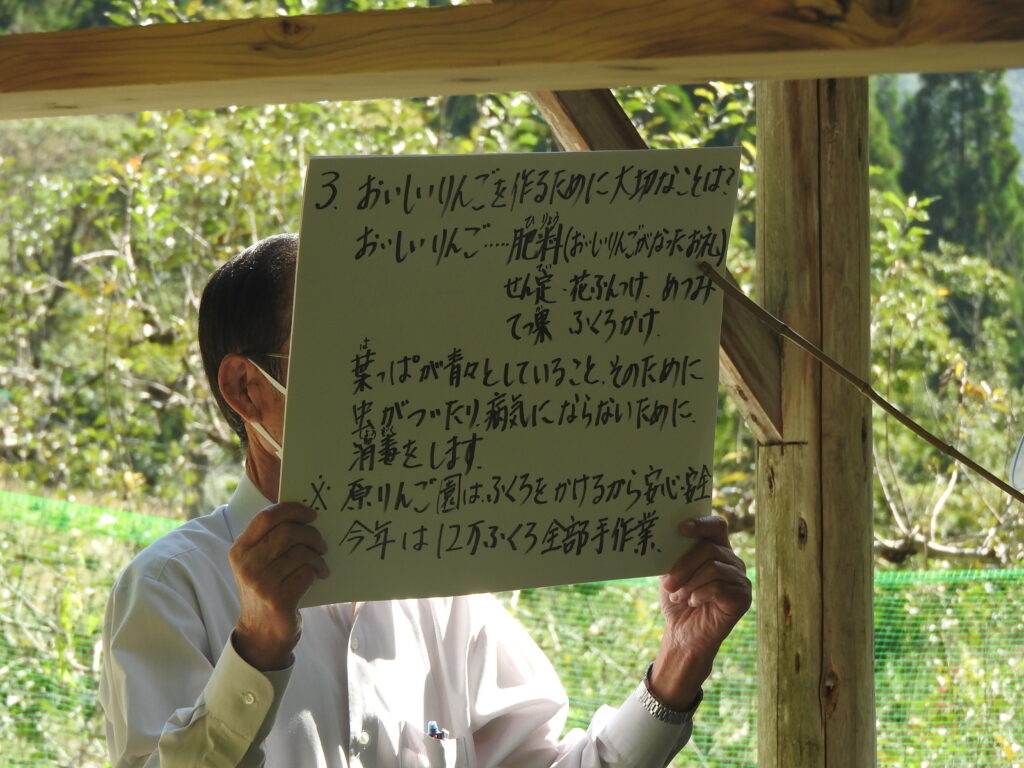 3. おいしいりんごを作るために大切なことは?
おいしいりんご……肥料(おいしいりんごがなったお礼)
ひりょう
せん定 花ぶんつけ、めつみ
てっ果 ふくろかけ、
葉っぱが青々としていること、そのために
は
虫がついたり、病気にならないために、
消毒をします。
※ 原りんご園は、ふくろをかけるから安心・安全
今年は12万ふくろ全部手作業、